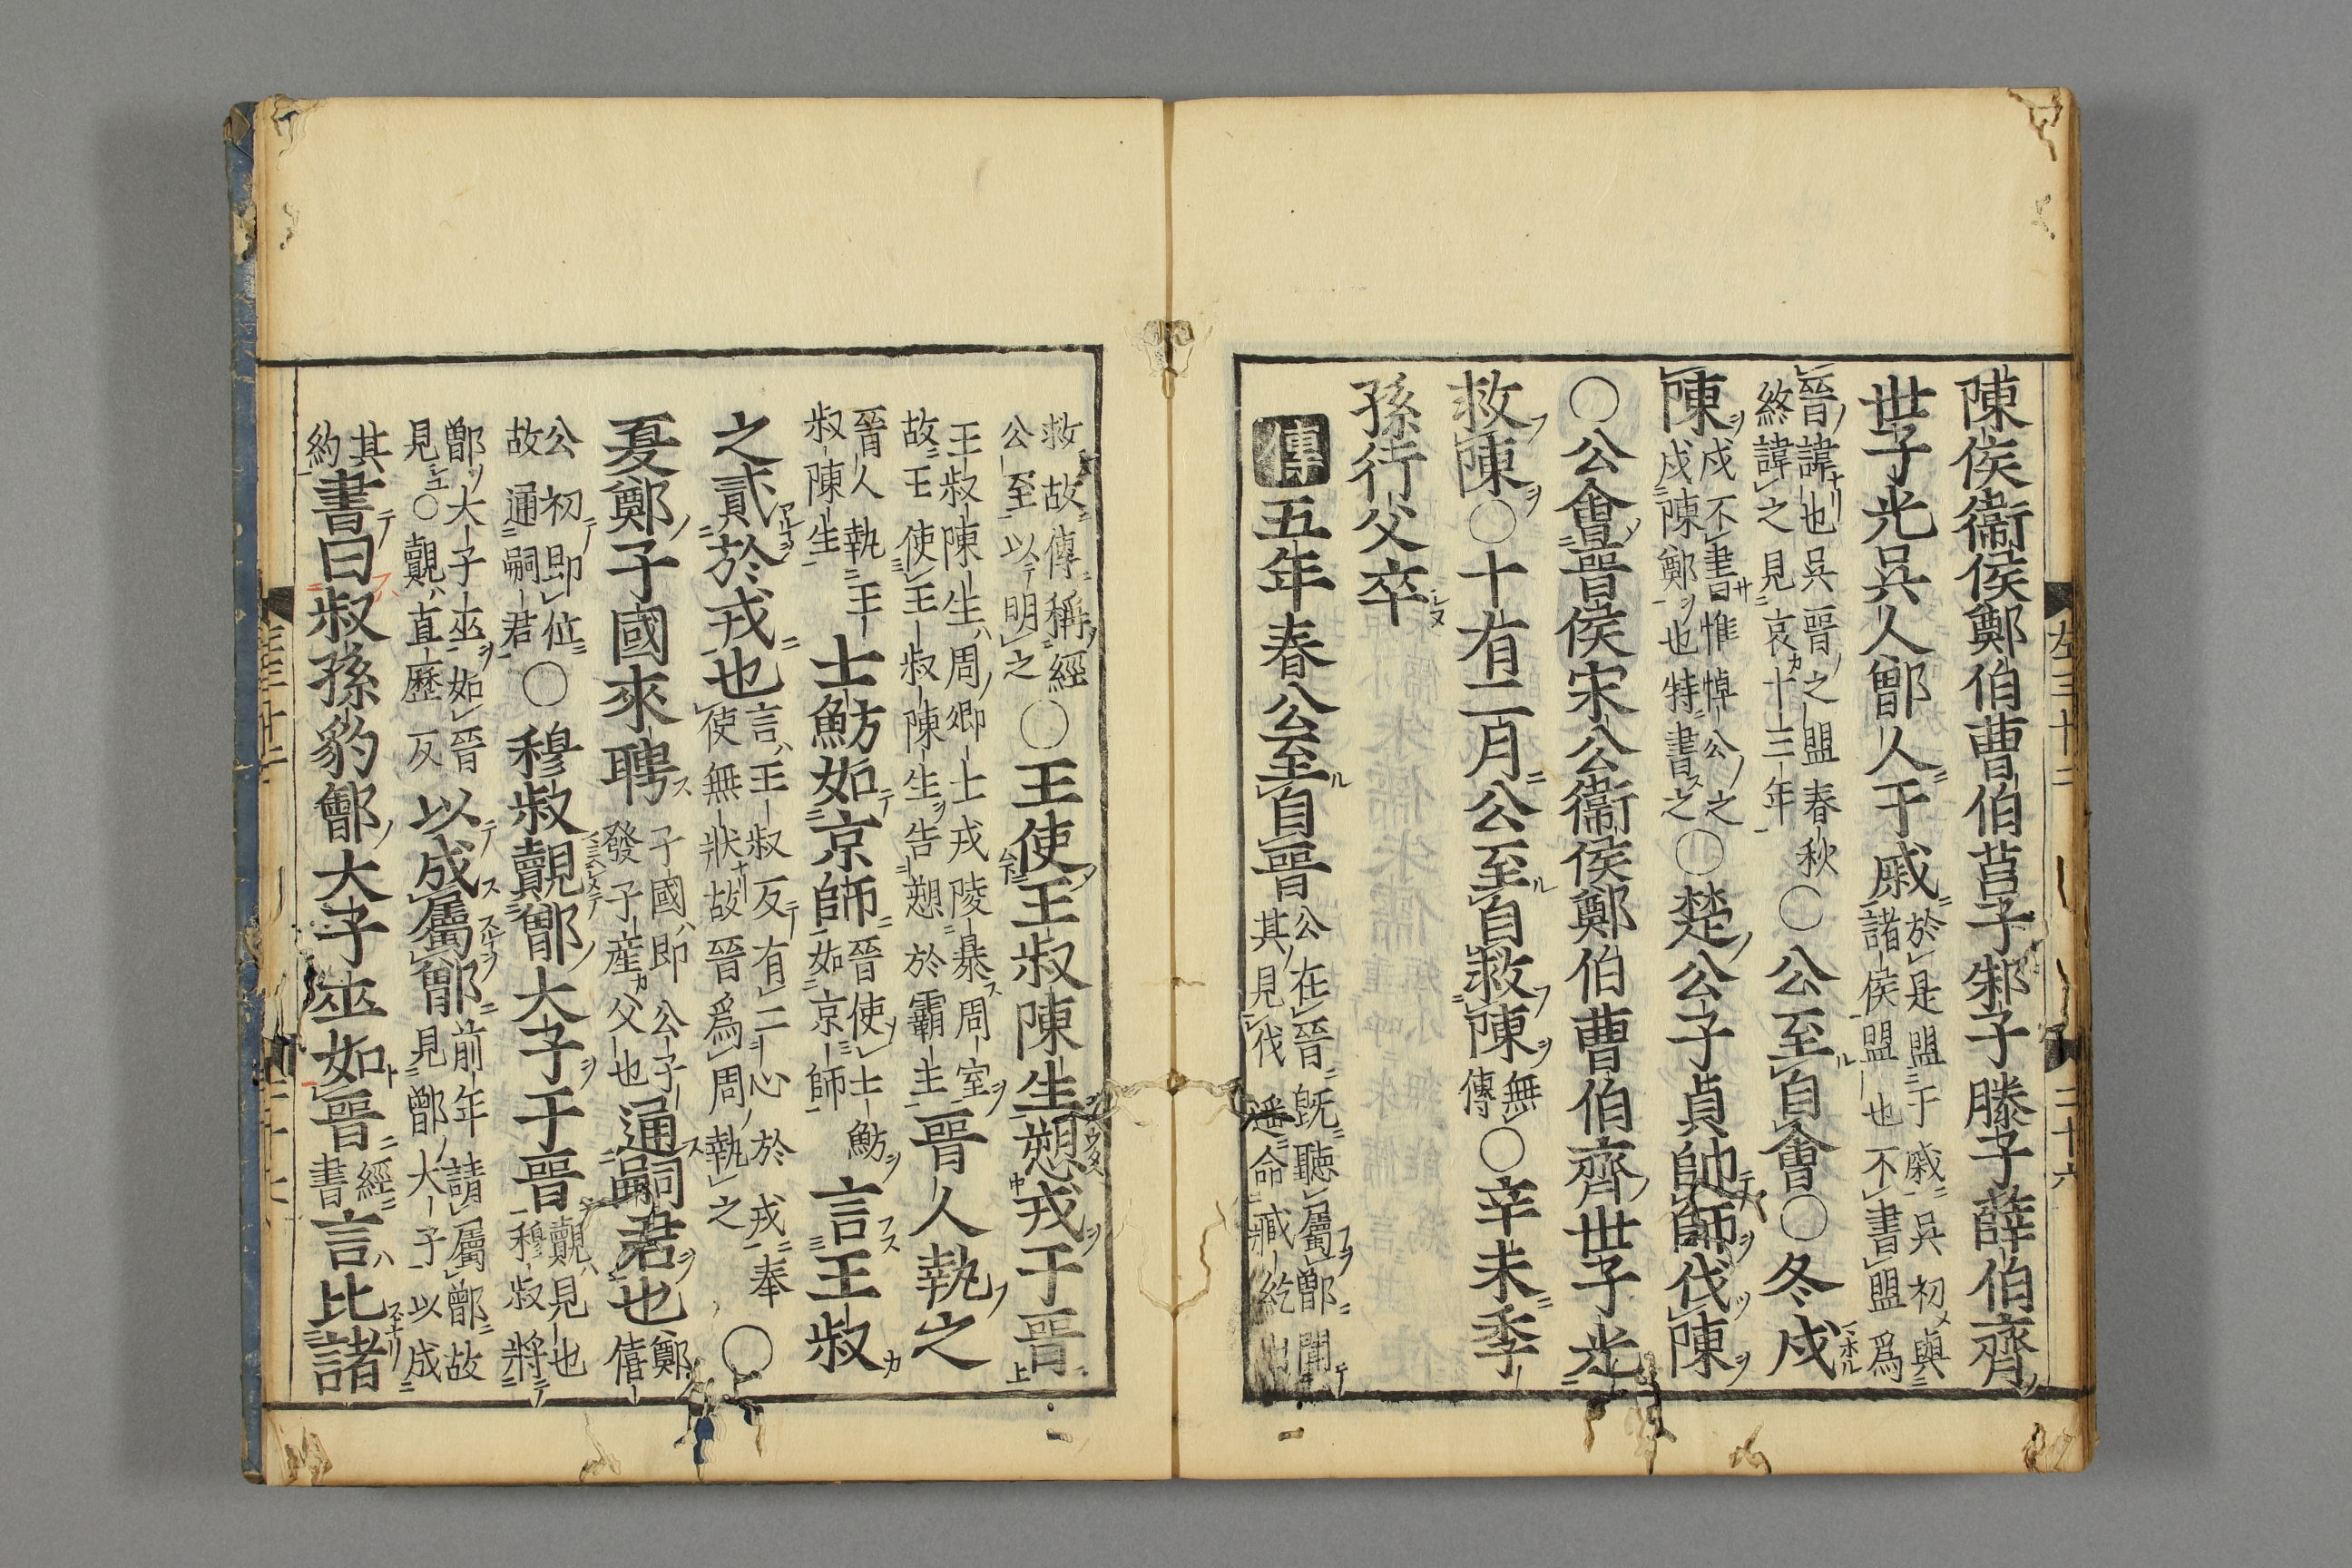 陳侯衞侯鄭伯曹伯莒子邾子滕子薛伯齊
世子光吳人鄫人于戚於是盟于戚吳初與諸侯盟也不書盟爲
晉諱也吳晉之盟春秋終諱之見哀十三年○公至自會○冬戍
陳戍不書惟悼公之戍陳鄭也特書之○楚公子貞帥師伐陳
○公會晉侯宋公衞侯鄭伯曹伯齊世子光
救陳○十有二月公至自救陳無傳○辛未季
孫行父卒
傳五年春公至自晉公在晉旣聽屬鄫聞其見伐遥命臧紇出
救故傳稱經公至以明之○王使王叔陳生愬戎于晉
王叔陳生周卿士戎陵暴周室故王使王叔陳生告愬於霸主晉人執之
晉人執王叔陳生士魴如京師晉使士魴如京師言王叔
之貳於戎也言王叔反有二心於戎奉使無狀故晉爲周執之○
夏鄭子國來聘子國卽公子發子產父也通嗣君也鄭僖
公初卽位故通嗣君○穆叔覿鄫大子于晉覿見也穆叔將
鄫大子巫如晉見○覿直歷反以成屬鄫前年請屬鄫故見鄫大子以成
其約書曰叔孫豹鄫大子巫如晉經書言比諸
左三十二
二十六